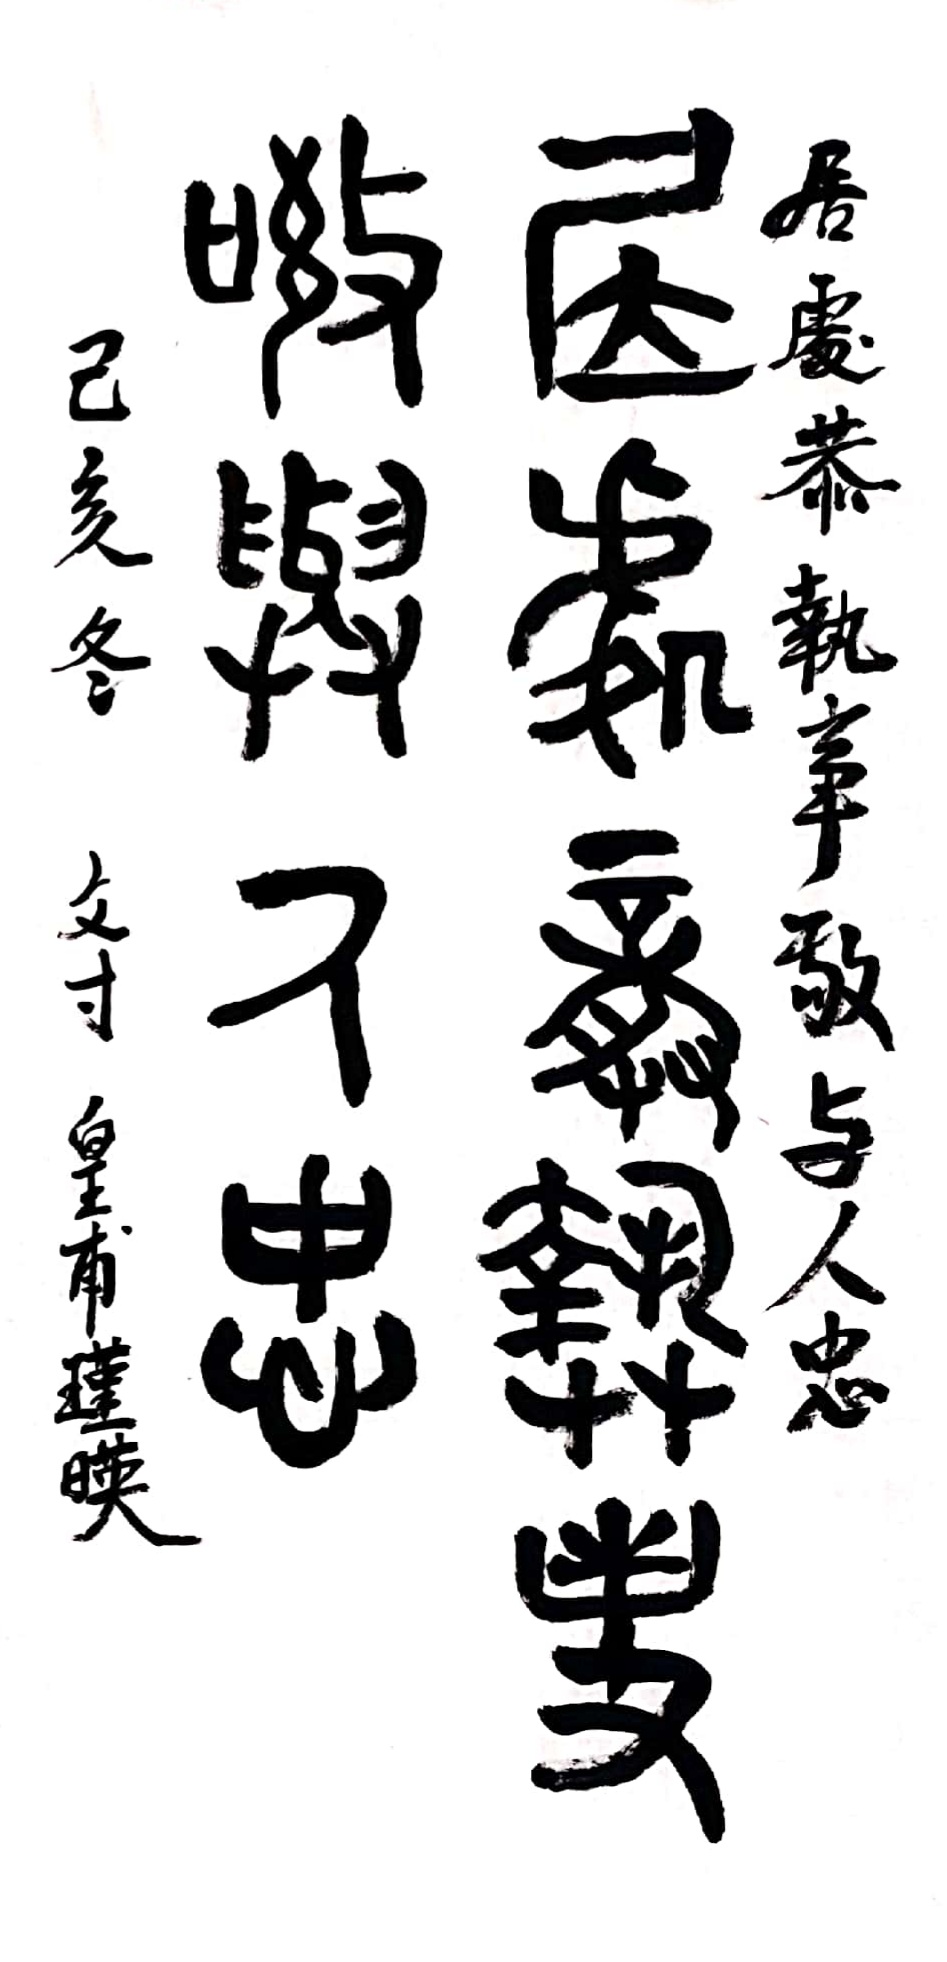 居處恭執事敬与人忠
居處恭執事
敬與人忠
己亥冬 文寸 皇甫瑾暎